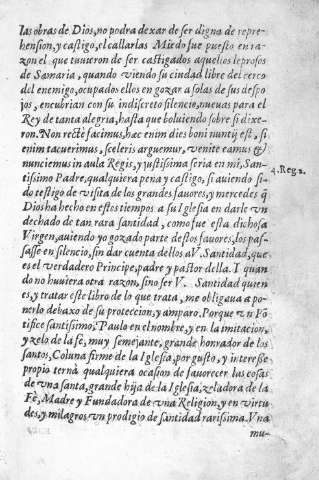 las obras de Dios, no podra dexar de ser digna de repre-
hension, y castigo, el callarlas Miedo fue puesto en ra-
zon el que tuuieron de ser castigados aquellos leprosos
de Samaria, quando viendo su ciudad libre del cerco
del enemigo, ocupados ellos en gozar a solas de sus despo
jos, encubrian con su indiscreto silencio, nueuas para el
Rey de tanta alegria, hasta que boluiendo sobre si dixe-
ron. Non rectè facimus, hæc enim dies boni nuntij est, si
enim tacuerimus, sceleris arguemur, venite eamus &
nunciemus in aula Regis, y justissima seria en mi, San-
4. Reg. 2.
tissimo Padre, qualquiera pena y castigo, si auiendo si-
do testigo de vista de los grandes fauores, y mercedes q̃
Dios ha hecho en estos tiempos a su Iglesia en darle vn
dechado de tan rara santidad, como fue esta dichosa
Virgen, auiendo yo gozado parte destos fauores, los pas-
sasse en silencio, sin dar cuenta dellos a V. Santidad, que
es el verdadero Principe, padre y pastor della. I quan
do no huuiera otra razon, sino ser V. Santidad quien
es, y tratar este libro de lo que trata, me obligaua a po-
nerlo debaxo de su proteccion, y amparo. Porque vn Põ
tifice santissimo, Paulo en el nombre, y en la imitacion,
y zelo de la fè, muy semejante, grande honrador de los
santos, Coluna firme de la Iglesia, por gusto, y interesse
propio ternà qualquiera ocasion de fauorecer las cosas
de vna santa, grande hija de la Iglesia, zeladora de la
Fè, Madre y Fundadora de vna Religion, y en virtu
des, y milagros vn prodigio de sãtidad rarissima. Vna
mu-